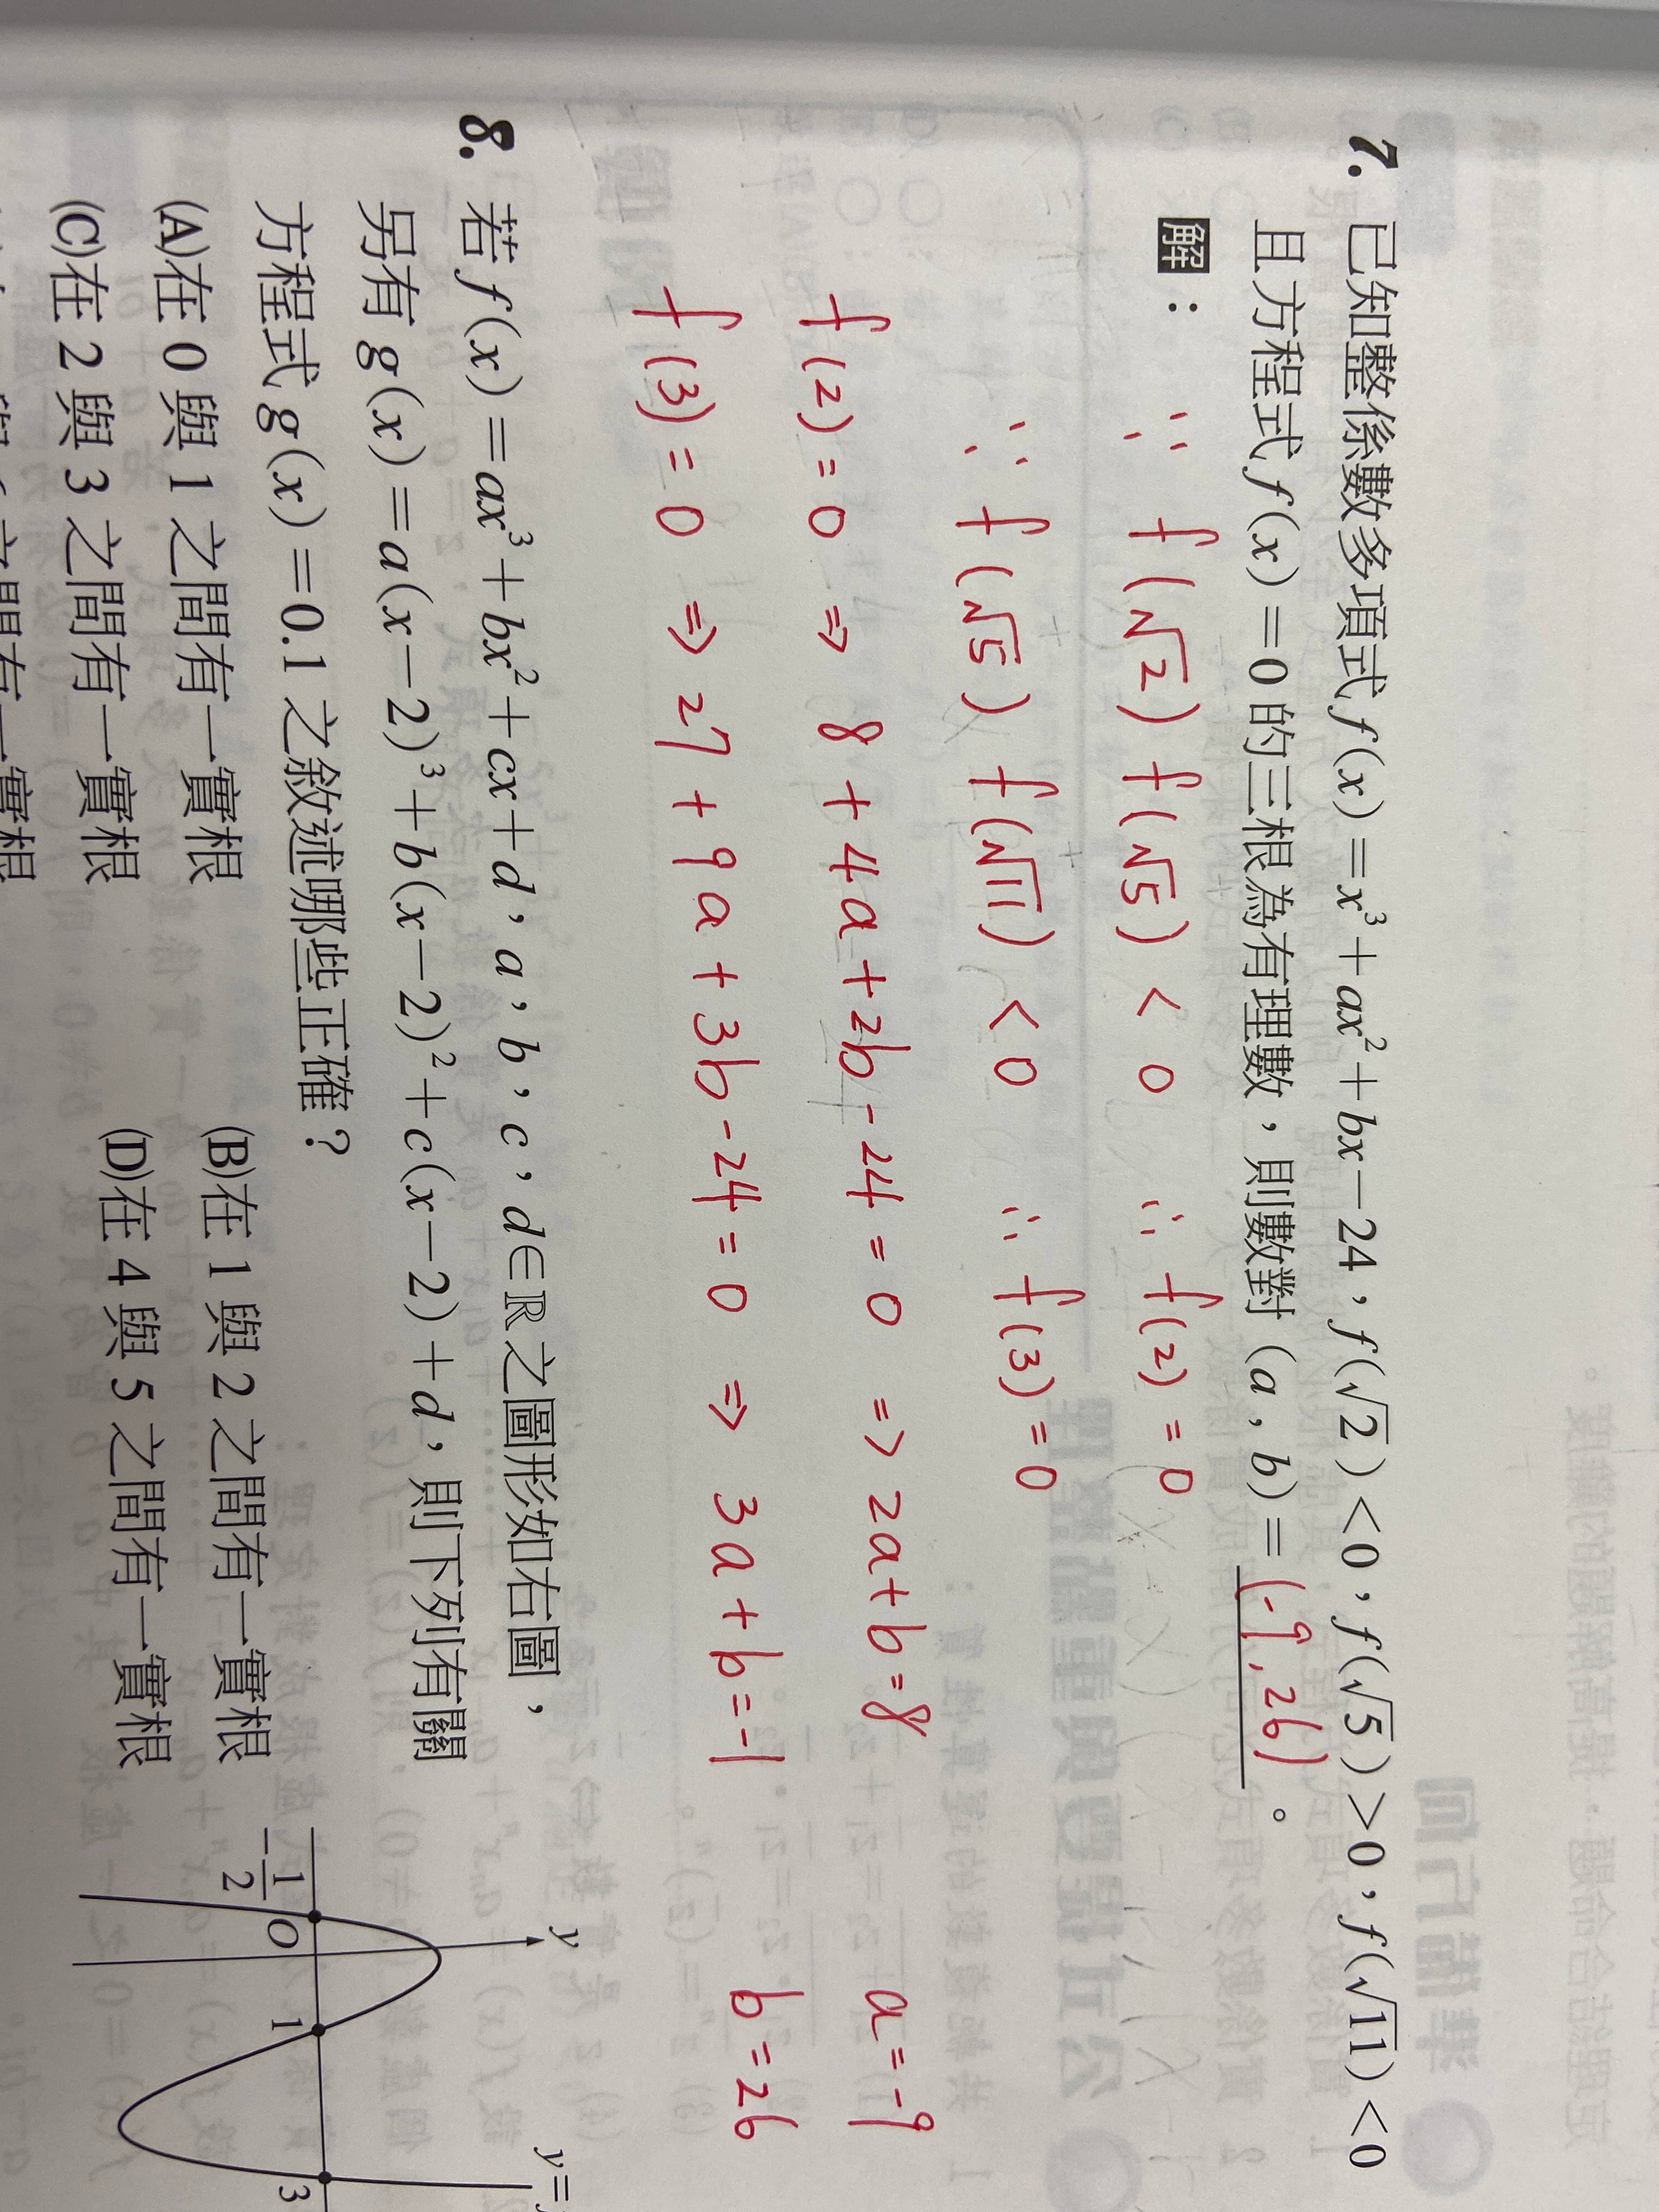 7. 已知整係數多項式 f(x)=x³+ax²+bx−24，f(√2)<0，f(√5)>0，f(√11)<0
且方程式 f(x)=0 的三根為有理數，則數對 (a，b)= (-9, 26) 。
解：
∵ f(√2) f(√5) < 0 ∴ f(2) = 0
∵ f(√5) f(√11) < 0 ∴ f(3) = 0
f(2) = 0 ⇒ 8 + 4a + 2b - 24 = 0 ⇒ 2a + b = 8 a = -9
f(3) = 0 ⇒ 27 + 9a + 3b - 24 = 0 ⇒ 3a + b = -1 b = 26
8. 若 f(x)=ax³+bx²+cx+d，a，b，c，d∈ℝ 之圖形如右圖，
另有 g(x)=a(x−2)³+b(x−2)²+c(x−2)+d，則下列有關
方程式 g(x)=0.1 之敘述哪些正確？
(A)在 0 與 1 之間有一實根 (B)在 1 與 2 之間有一實根
(C)在 2 與 3 之間有一實根 (D)在 4 與 5 之間有一實根
之間有一實根
y
y=
−1/2
O
1
3